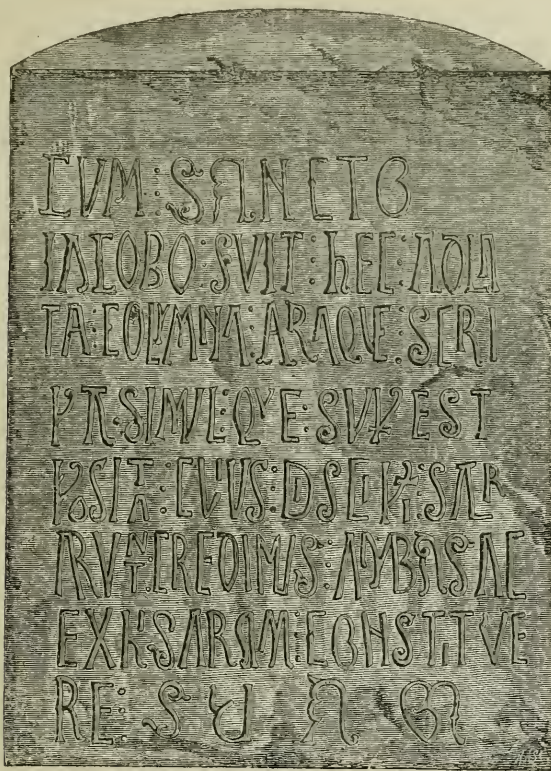 CVM : SANCTO
IACOBO : FVIT : hEC : ADLA
TA : COLVMNA : ARAQUE : SCRI
PTA : SIMVL : QVE : SVP EST
POSITA : CVIVS : DSCIPLI : SACR
ARVNT : CREDIMVS : AMBAS AC
EX HIS ARAM : CONSTITVE
RE : SUAM